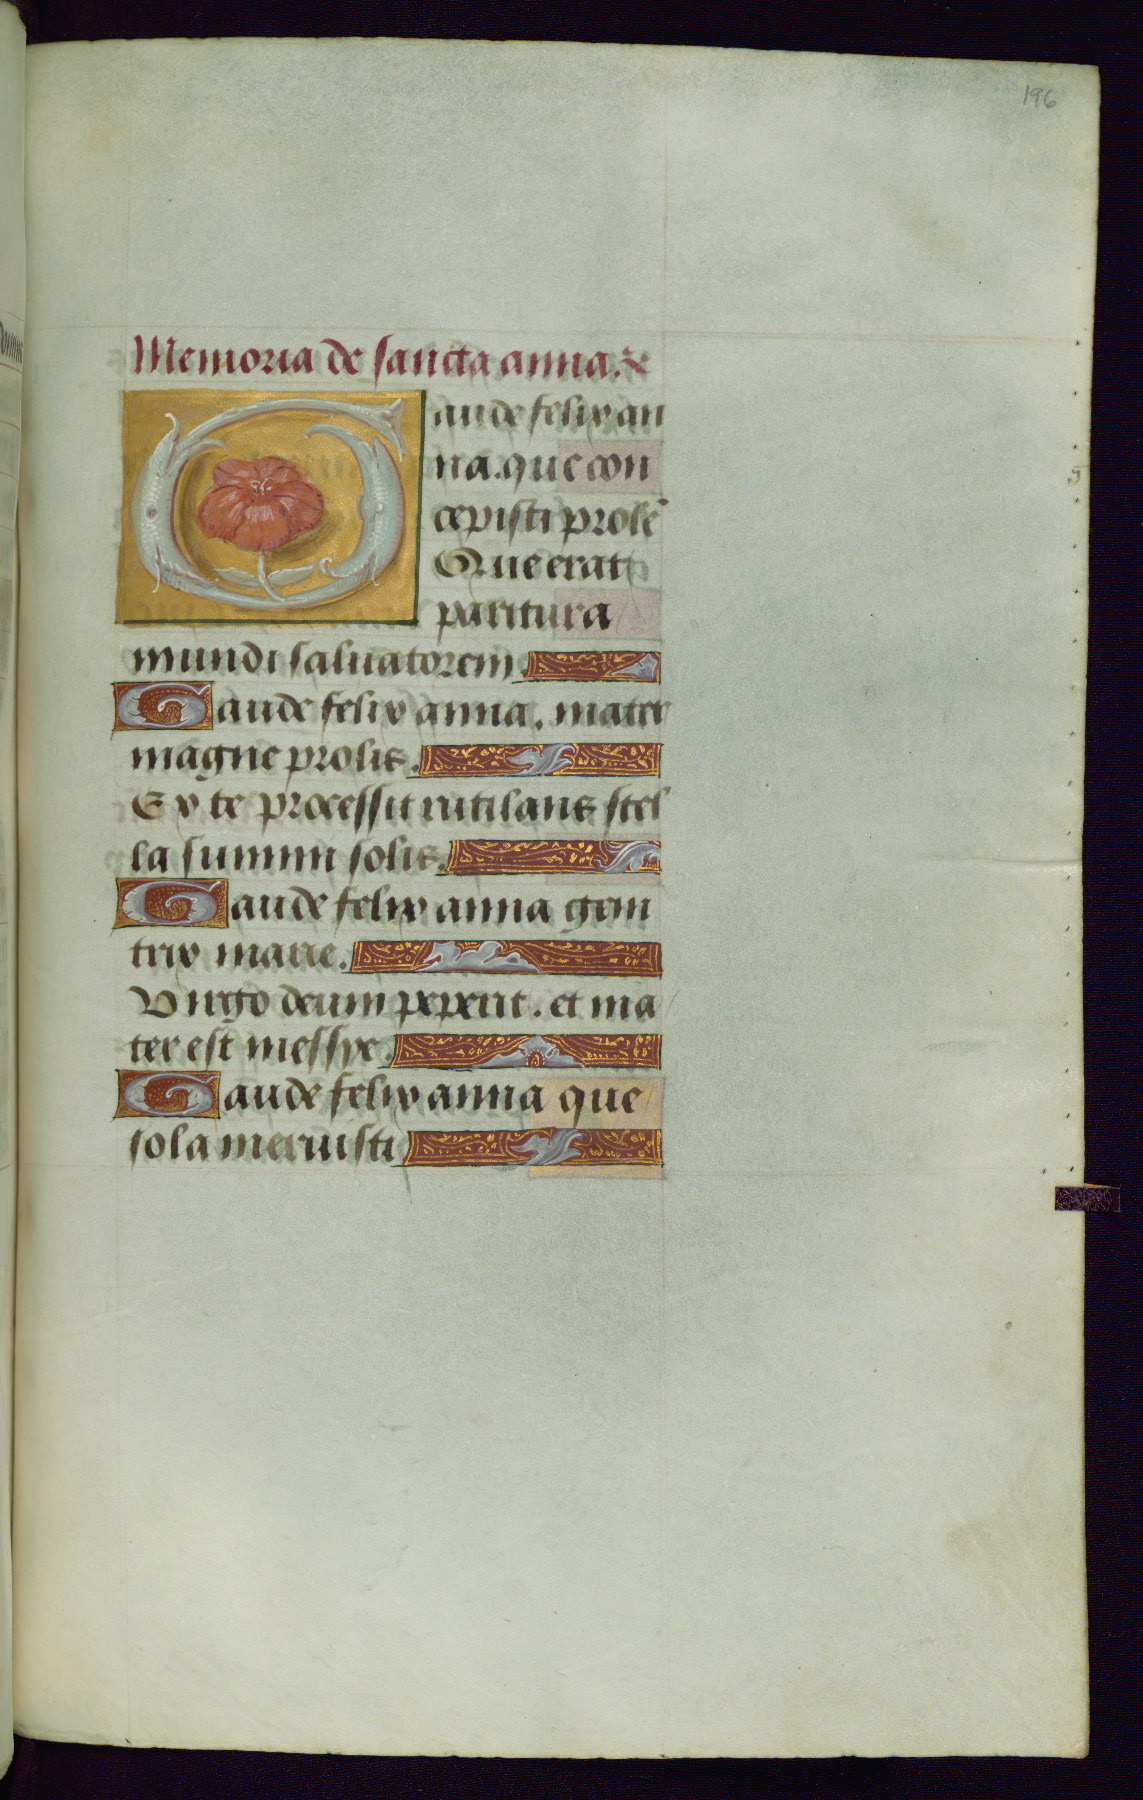 196
Memoria de sancta anna. &
Gaude felix an
na. que con
cepisti prolē
Que erat
paritura
mundi saluatorem.
Gaude felix anna. mater
magne prolis.
Ex te processit rutilans stel
la summi solis.
Gaude felix anna geni
trix marie.
Virgo deum peperit. et ma
ter est messye.
Gaude felix anna que
sola meruisti